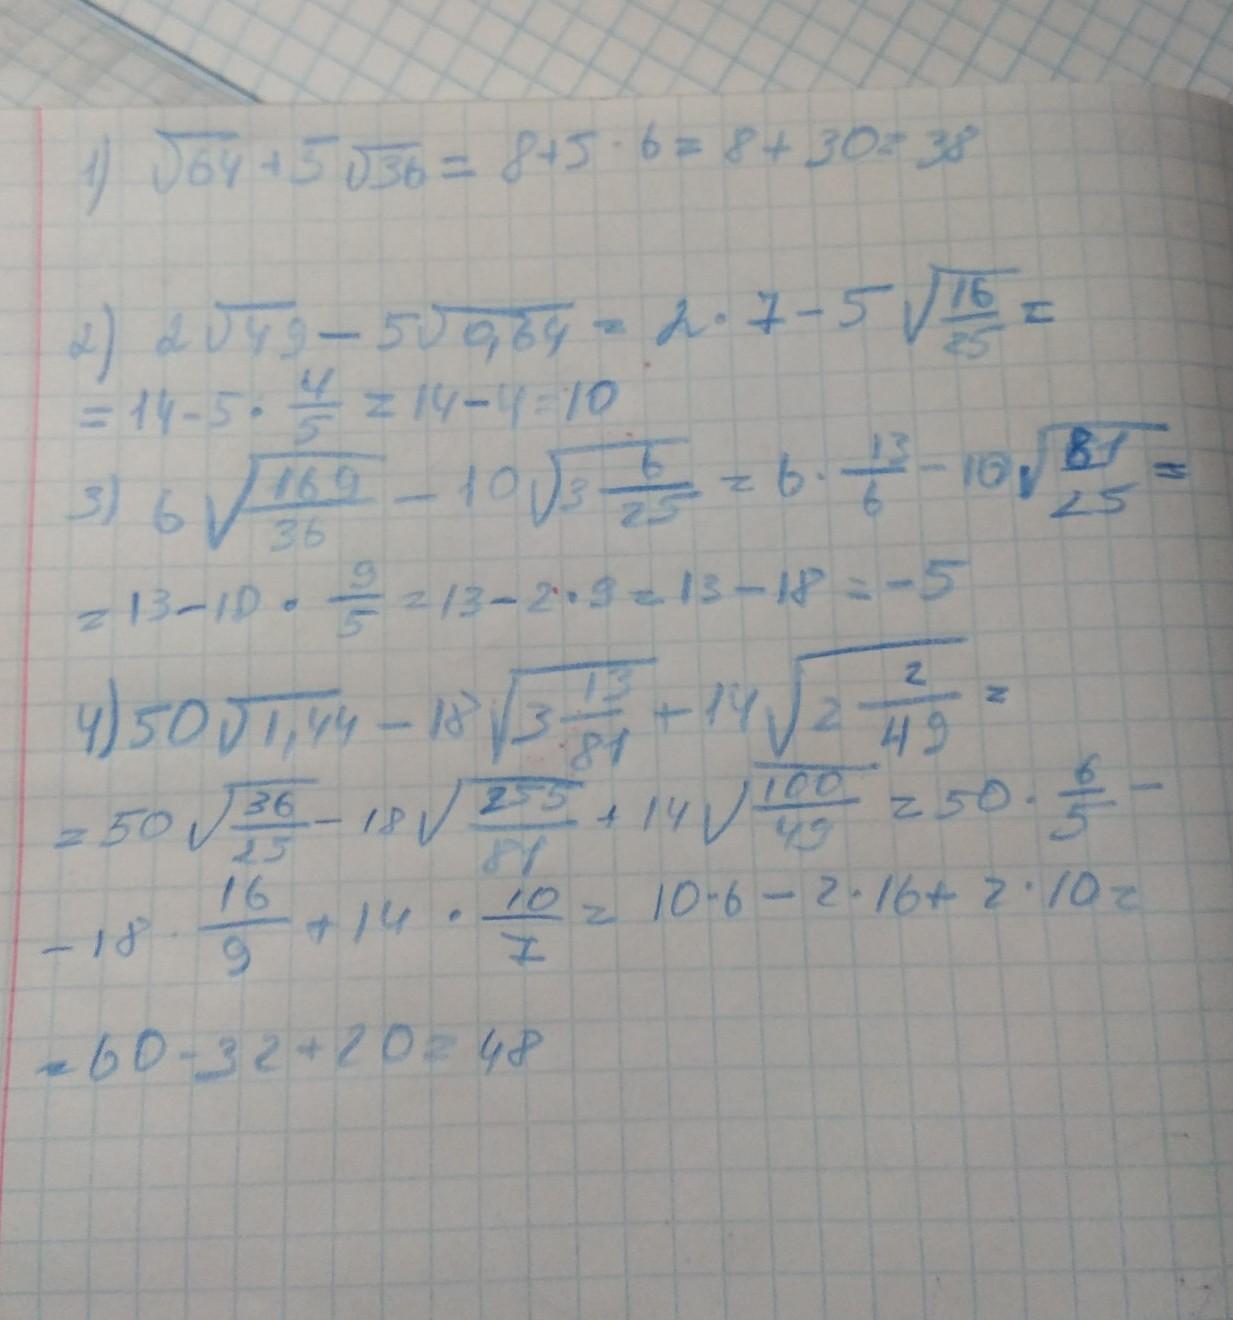 1) √64 + 5√36 = 8+5·6 = 8+30=38
2) 2√49 − 5√0,64 = 2·7−5√(16/25) =
= 14−5·4/5 = 14−4=10
3) 6√(169/36) − 10√(3 6/25) = 6·13/6 − 10√(81/25) =
= 13−10·9/5 = 13−2·9 = 13−18 = −5
4) 50√1,44 − 18√(3 13/81) + 14√(2 2/49) =
= 50√(36/25) − 18√(255/81) + 14√(100/49) = 50·6/5 −
− 18·16/9 + 14·10/7 = 10·6 − 2·16 + 2·10 =
= 60−32+20=48